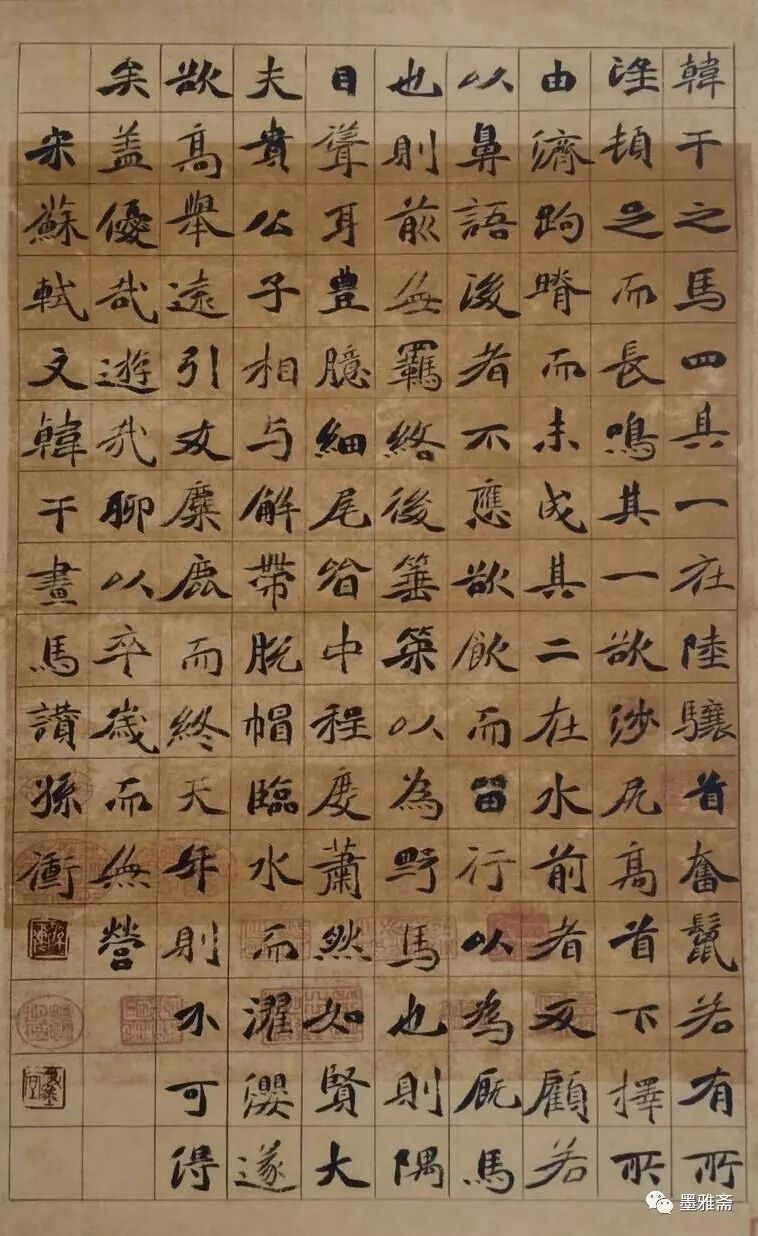 韓干之馬四其一在陸驤首奮鬣若有所
望頓足而長鳴其一欲涉尻高首下擇所
由濟跼蹐而未成其二在水前者反顧若
以鼻語後者不應欲飲而留行以為厩馬
也則前無羈絡後箠策以為野馬也則隅
目聳耳豊臆細尾皆中程度蕭然如賢大
夫貴公子相与解帶脱帽臨水而濯纓遂
欲高舉遠引友麋鹿而終天年則不可得
矣盖優哉遊哉聊以卒歲而無營
宋蘇軾文韓干畫馬讚孫衝
墨雅斋